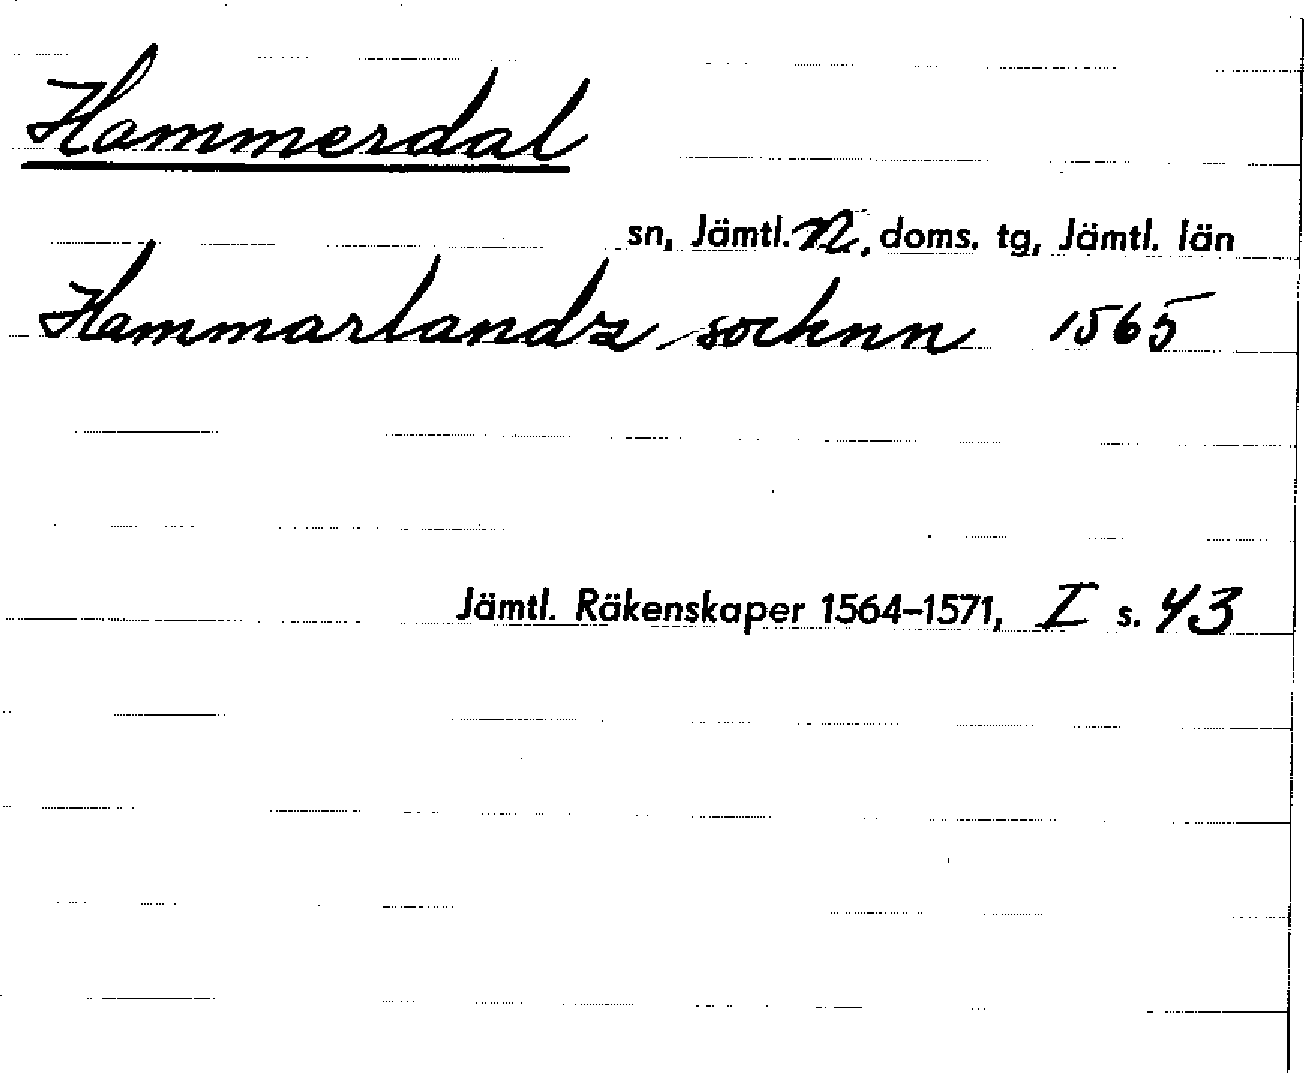 Hammerdal
sn, Jämtl. n. doms. tg, Jämtl. län
Hammarlandz socknn 1565
Jämtl. Räkenskaper 1564–1571, I s. 43